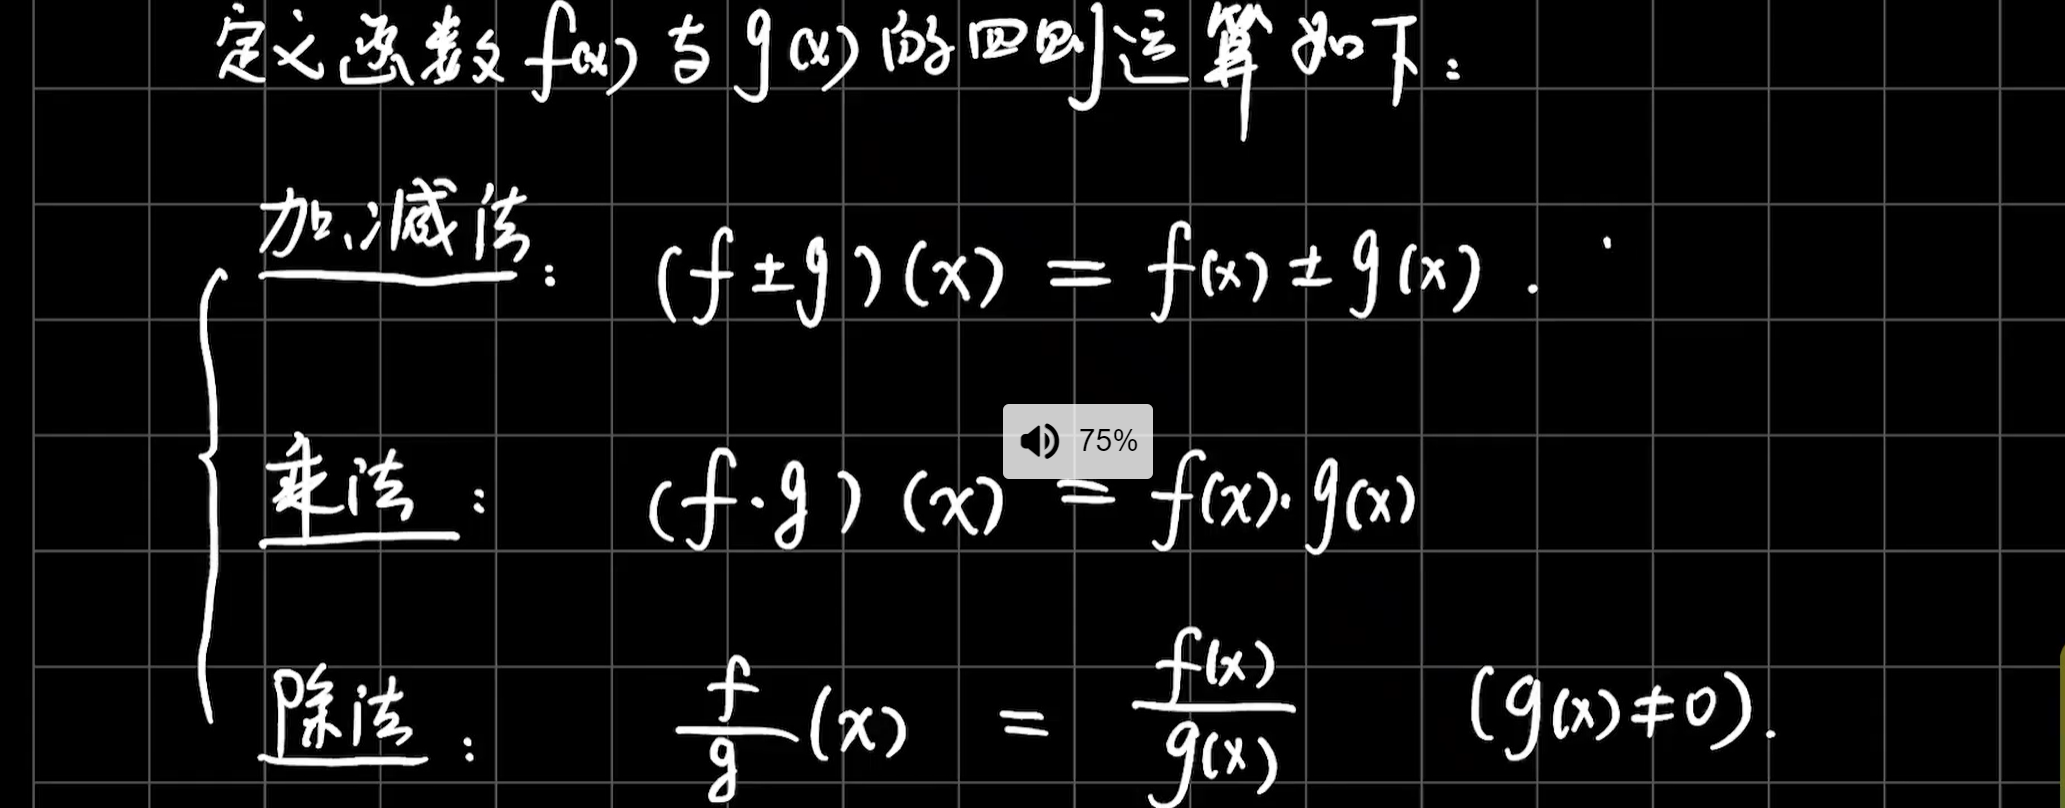 定义函数 f(x) 与 g(x) 的四则运算如下：
加、减法： (f ± g)(x) = f(x) ± g(x).
75%
乘法： (f·g)(x) = f(x)·g(x)
除法： f/g (x) = f(x)/g(x) (g(x)≠0).